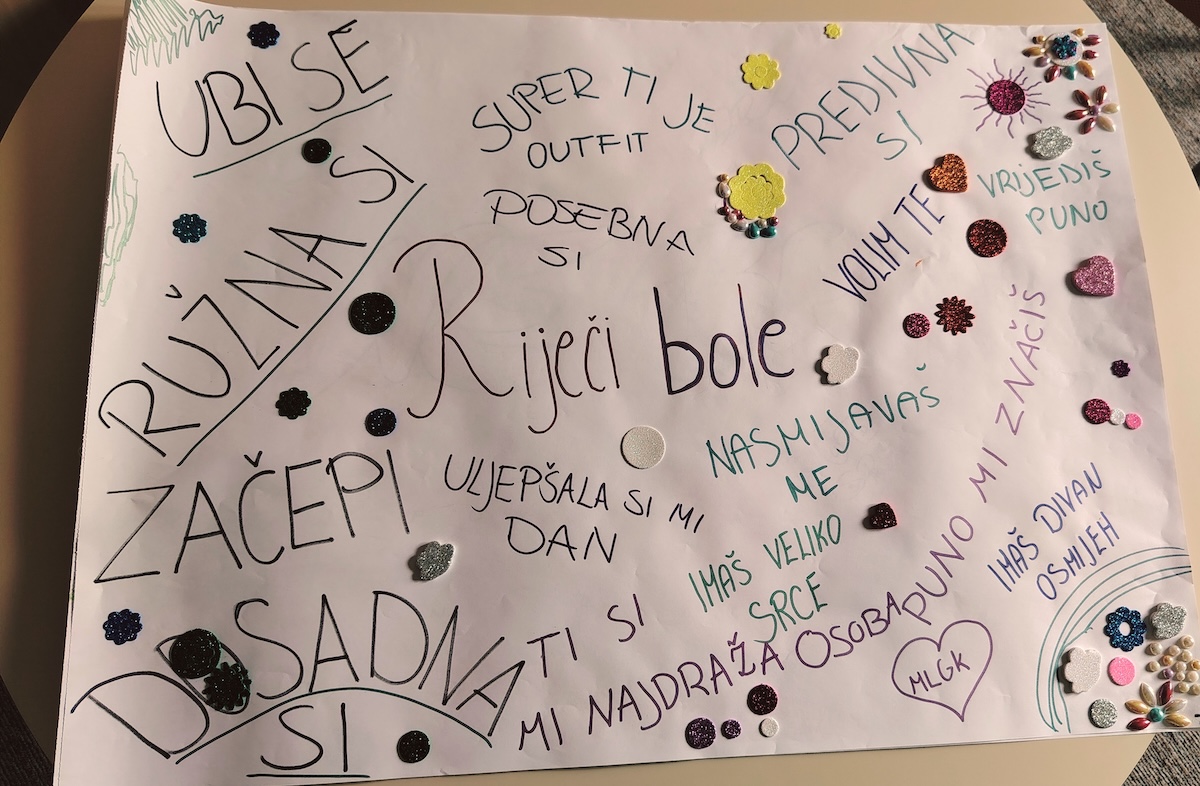 UBI SE
RUŽNA SI
ZAČEPI
DOSADNA
SI
SUPER TI JE
OUTFIT
POSEBNA
SI
Riječi bole
ULJEPŠALA SI MI
DAN
TI SI
MI NAJDRAŽA OSOBA
PREDIVNA
SI
VRIJEDIŠ
PUNO
VOLIM TE
NASMIJAVAŠ
ME
IMAŠ VELIKO
SRCE
PUNO MI ZNAČIŠ
IMAŠ DIVAN
OSMIJEH
MLGK